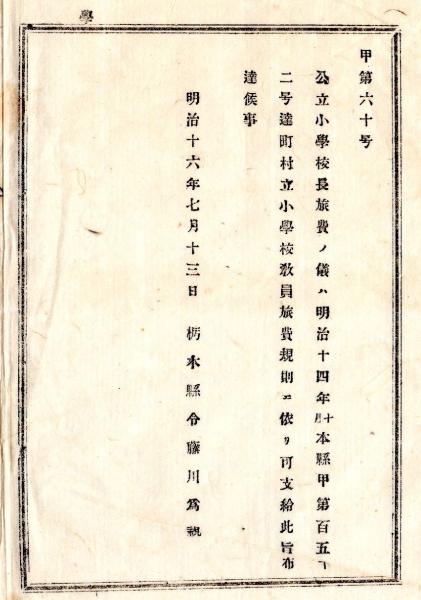 學
甲第六十号
公立小學校長旅費ノ儀ハ明治十四年十月本縣甲第百五十
二号達町村立小學校敎員旅費規則ニ依リ可支給此旨布
達候事
明治十六年七月十三日　栃木縣令藤川爲親